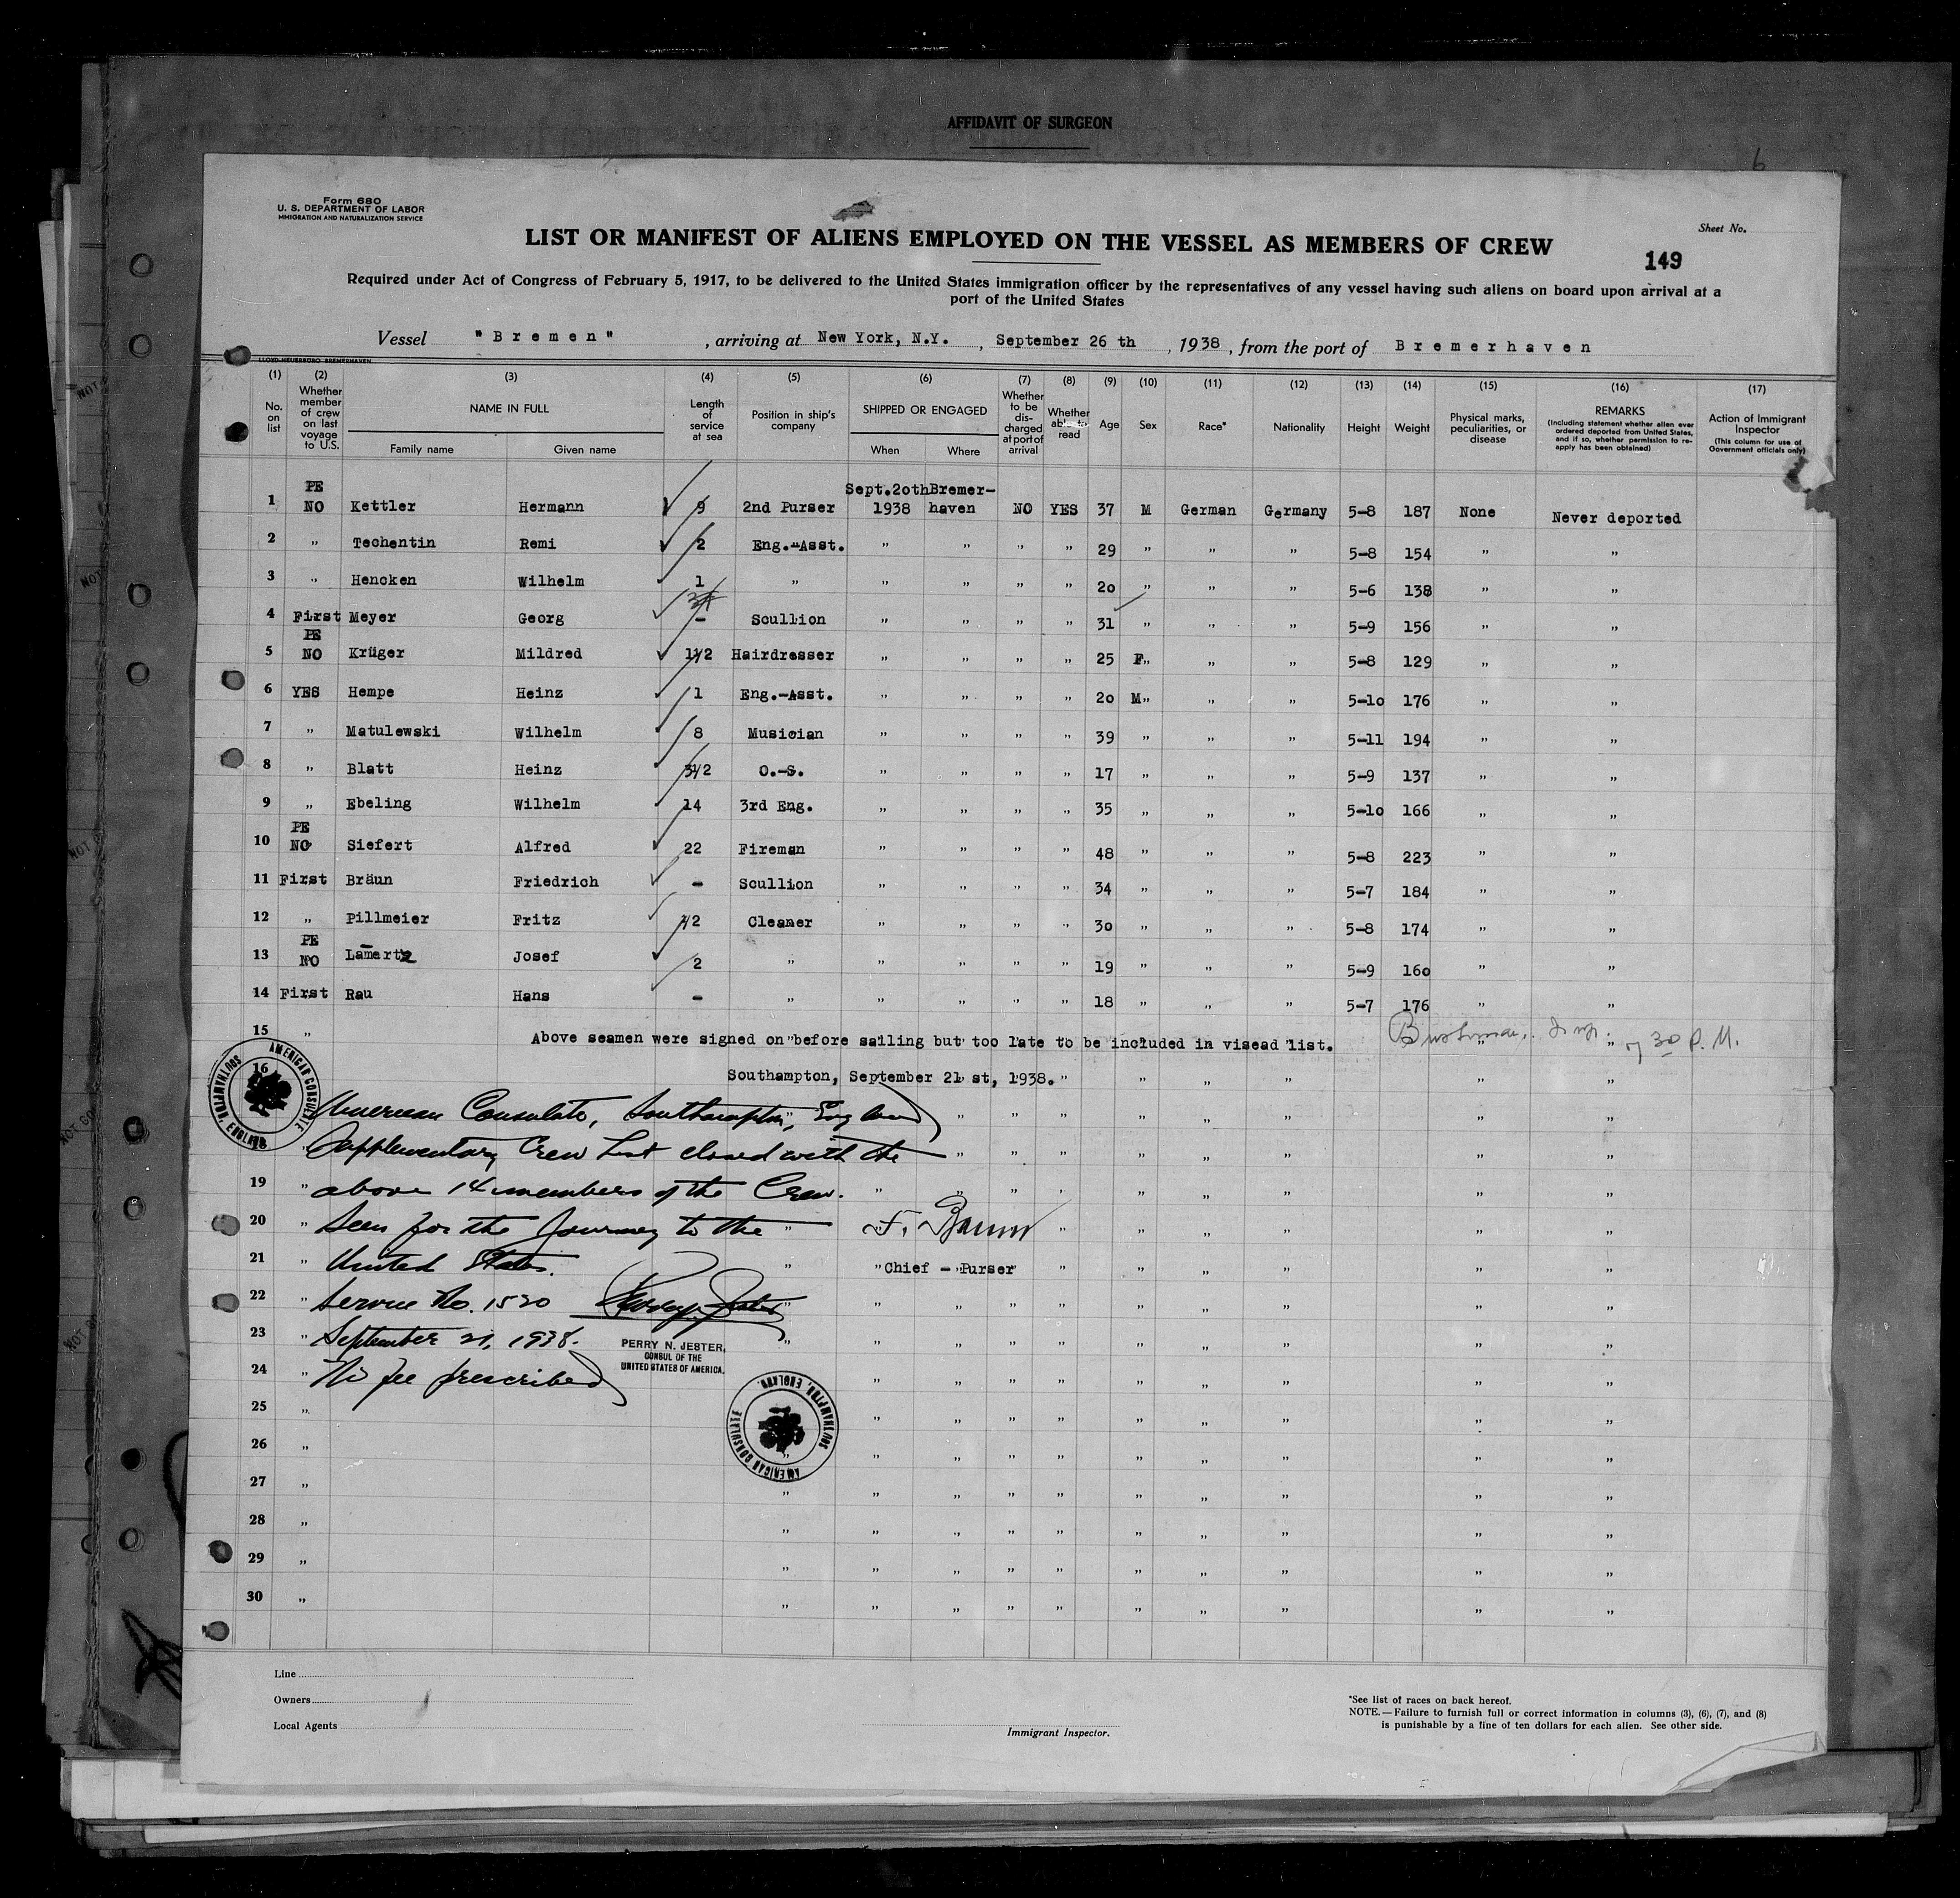 AFFIDAVIT OF SURGEON
6
Form 680
U. S. DEPARTMENT OF LABOR
IMMIGRATION AND NATURALIZATION SERVICE
Sheet No.
LIST OR MANIFEST OF ALIENS EMPLOYED ON THE VESSEL AS MEMBERS OF CREW
149
Required under Act of Congress of February 5, 1917, to be delivered to the United States immigration officer by the representatives of any vessel having such aliens on board upon arrival at a
port of the United States
Vessel "Bremen", arriving at New York, N.Y., September 26 th, 1938, from the port of Bremerhaven
LLOYD-HEUERBÜRO BREMERHAVEN
(1) (2) (3) (4) (5) (6) (7) (8) (9) (10) (11) (12) (13) (14) (15) (16) (17)
No. on list
Whether member of crew on last voyage to U.S.
NAME IN FULL
Family name Given name
Length of service at sea
Position in ship's company
SHIPPED OR ENGAGED
When Where
Whether to be discharged at port of arrival
Whether able to read
Age
Sex
Race*
Nationality
Height
Weight
Physical marks, peculiarities, or disease
REMARKS
(Including statement whether alien ever ordered deported from United States, and if so, whether permission to re-apply has been obtained)
Action of Immigrant Inspector
(This column for use of Government officials only)
1 PE NO Kettler Hermann 9 2nd Purser Sept.20th 1938 Bremer-haven NO YES 37 M German Germany 5-8 187 None Never deported
2 " Techentin Remi 2 Eng.-Asst. " " " " 29 " " " 5-8 154 " "
3 " Hencken Wilhelm 1 " " " " " 20 " " " 5-6 138 " "
4 First Meyer Georg - Scullion " " " " 31 " " " 5-9 156 " "
5 PE NO Krüger Mildred 1 1/2 Hairdresser " " " " 25 F" " " 5-8 129 " "
6 YES Hempe Heinz 1 Eng.-Asst. " " " " 20 M" " " 5-10 176 " "
7 " Matulewski Wilhelm 8 Musician " " " " 39 " " " 5-11 194 " "
8 " Blatt Heinz 3 1/2 O.-S. " " " " 17 " " " 5-9 137 " "
9 " Ebeling Wilhelm 14 3rd Eng. " " " " 35 " " " 5-10 166 " "
10 PE NO Siefert Alfred 22 Fireman " " " " 48 " " " 5-8 223 " "
11 First Bräun Friedrich - Scullion " " " " 34 " " " 5-7 184 " "
12 " Pillmeier Fritz 1/2 Cleaner " " " " 30 " " " 5-8 174 " "
13 PE NO Lamertz Josef 2 " " " " " 19 " " " 5-9 160 " "
14 First Rau Hans - " " " " " 18 " " " 5-7 176 " "
15 " Above seamen were signed on before sailing but too late to be included in visead list. 7 30 P.M.
16 Southampton, September 21 st, 1938.
AMERICAN CONSULATE SOUTHAMPTON, ENGLAND
American Consulate, Southampton, England
18 Supplementary Crew List closed with the
19 " above 14 members of the Crew.
20 " Seen for the Journey to the F. Baum
21 " United States. Chief - Purser
22 " Service No. 1520
23 " September 21, 1938.
PERRY N. JESTER,
CONSUL OF THE
UNITED STATES OF AMERICA.
24 " No fee prescribed
AMERICAN CONSULATE SOUTHAMPTON, ENGLAND
25 "
26 "
27 "
28 "
29 "
30 "
Line
Owners
Local Agents
Immigrant Inspector.
*See list of races on back hereof.
NOTE.—Failure to furnish full or correct information in columns (3), (6), (7), and (8)
is punishable by a fine of ten dollars for each alien. See other side.